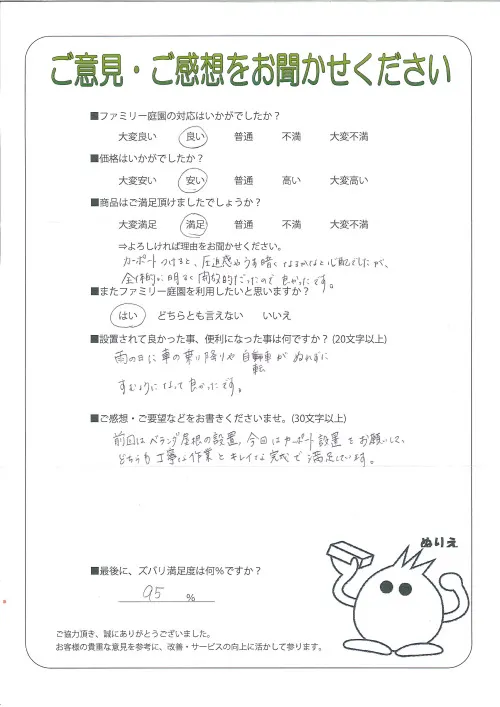 ご意見・ご感想をお聞かせください
■ファミリー庭園の対応はいかがでしたか？
大変良い 良い 普通 不満 大変不満
■価格はいかがでしたか？
大変安い 安い 普通 高い 大変高い
■商品はご満足頂けましたでしょうか？
大変満足 満足 普通 不満 大変不満
⇒よろしければ理由をお聞かせください。
カーポートつけると、圧迫感やうす暗くなるかなと心配でしたが、
全体的に明るく開放的だったので良かったです。
■またファミリー庭園を利用したいと思いますか？
はい どちらとも言えない いいえ
■設置されて良かった事、便利になった事は何ですか？(20文字以上)
雨の日に車の乗り降りや自転車がぬれずに
すむようになって良かったです。
■ご感想・ご要望などをお書きくださいませ。(30文字以上)
前回はベランダ屋根の設置、今回はカーポート設置をお願いして、
どちらも丁寧な作業とキレイな完成で満足しています。
ぬりえ
■最後に、ズバリ満足度は何％ですか？
95 %
ご協力頂き、誠にありがとうございました。
お客様の貴重な意見を参考に、改善・サービスの向上に活かして参ります。